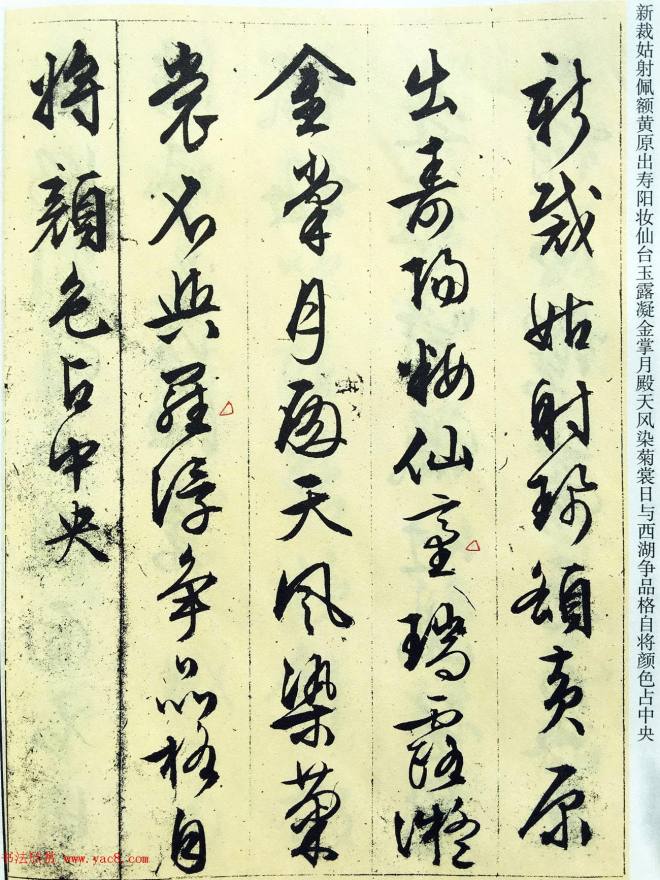 新裁姑射佩额黄原出寿阳妆仙台玉露凝金掌月殿天风染菊裳日与西湖争品格自将颜色占中央
新裁姑射額黃原
出壽陽粧仙臺瑞露凝
金掌月殿天風染菊
裳不與羅浮爭品格自
將顏色占中央
书法欣赏 www.yac8.com